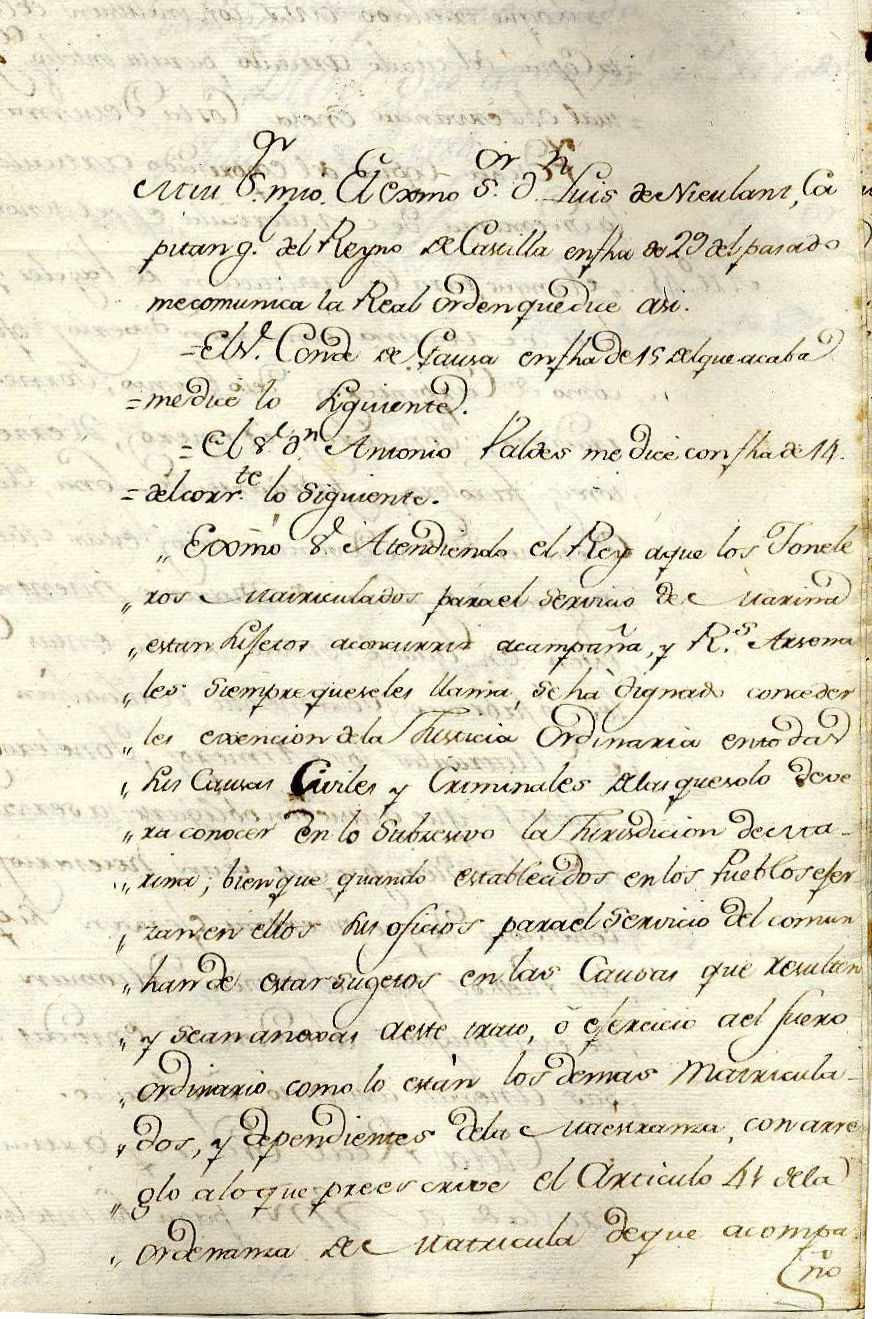 Mui S.or mio. El exmo S.or D.n Luis de Nieulant, Ca
pitan g.l del Reyno de Castilla en fha de 29 del pasado
me comunica la Real orden que dice asi.
=El S.r Conde de Gausa en fha de 15 del que acaba
=me dice lo siguiente.
=El S.r d.n Antonio Valdes me dice con fha de 14.
=del corr.te lo siguiente.
„ Exmo S.r Atendiendo el Rey aque los Tonele
„ ros Matriculados para el servicio de Marina
„ estan sugetos aconcurrir acampaña, y R.s Arsena
„ les siempre que se les llama, se há dignado conceder
„ les exencion de la Justicia Ordinaria en todas
„ sus Causas Civiles y Criminales de las que solo deve
„ ra conocer en lo subcesivo la Jurisdicion de Ma-
„ rina; bien que quando establecidos en los Pueblos ejer
„ zan en ellos sus oficios para el servicio del comun
„ han de estar sugetos en las Causas que resultan
„ y sean anexas aeste trato, ó ejercicio ael fuero
„ ordinario como lo están los demas Matricula-
„ dos, y dependientes dela Maestranza, con arre
„ glo alo que preescrive el Articulo 41 dela
„ ordenanza de Matricula deque acompa
ño